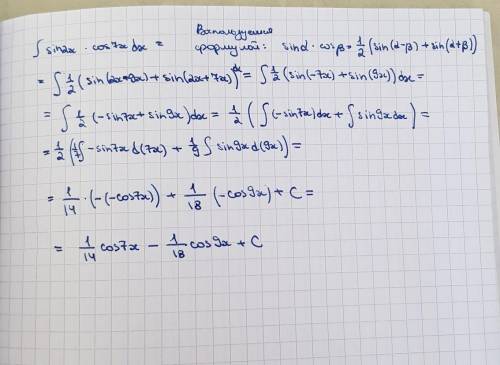 ∫ sin2x · cos7x dx = Воспользуемся формулой: sinα · cosβ = 1/2 (sin(α-β) + sin(α+β))
= ∫ 1/2 (sin(2x-9x) + sin(2x+7x)) dx = ∫ 1/2 (sin(-7x) + sin(9x)) dx =
= ∫ 1/2 (-sin7x + sin9x) dx = 1/2 (∫(-sin7x)dx + ∫ sin9x dx) =
= 1/2 (1/7 ∫ -sin7x d(7x) + 1/9 ∫ sin9x d(9x)) =
= 1/14 · (-(-cos7x)) + 1/18 (-cos9x) + C =
= 1/14 cos7x - 1/18 cos9x + C